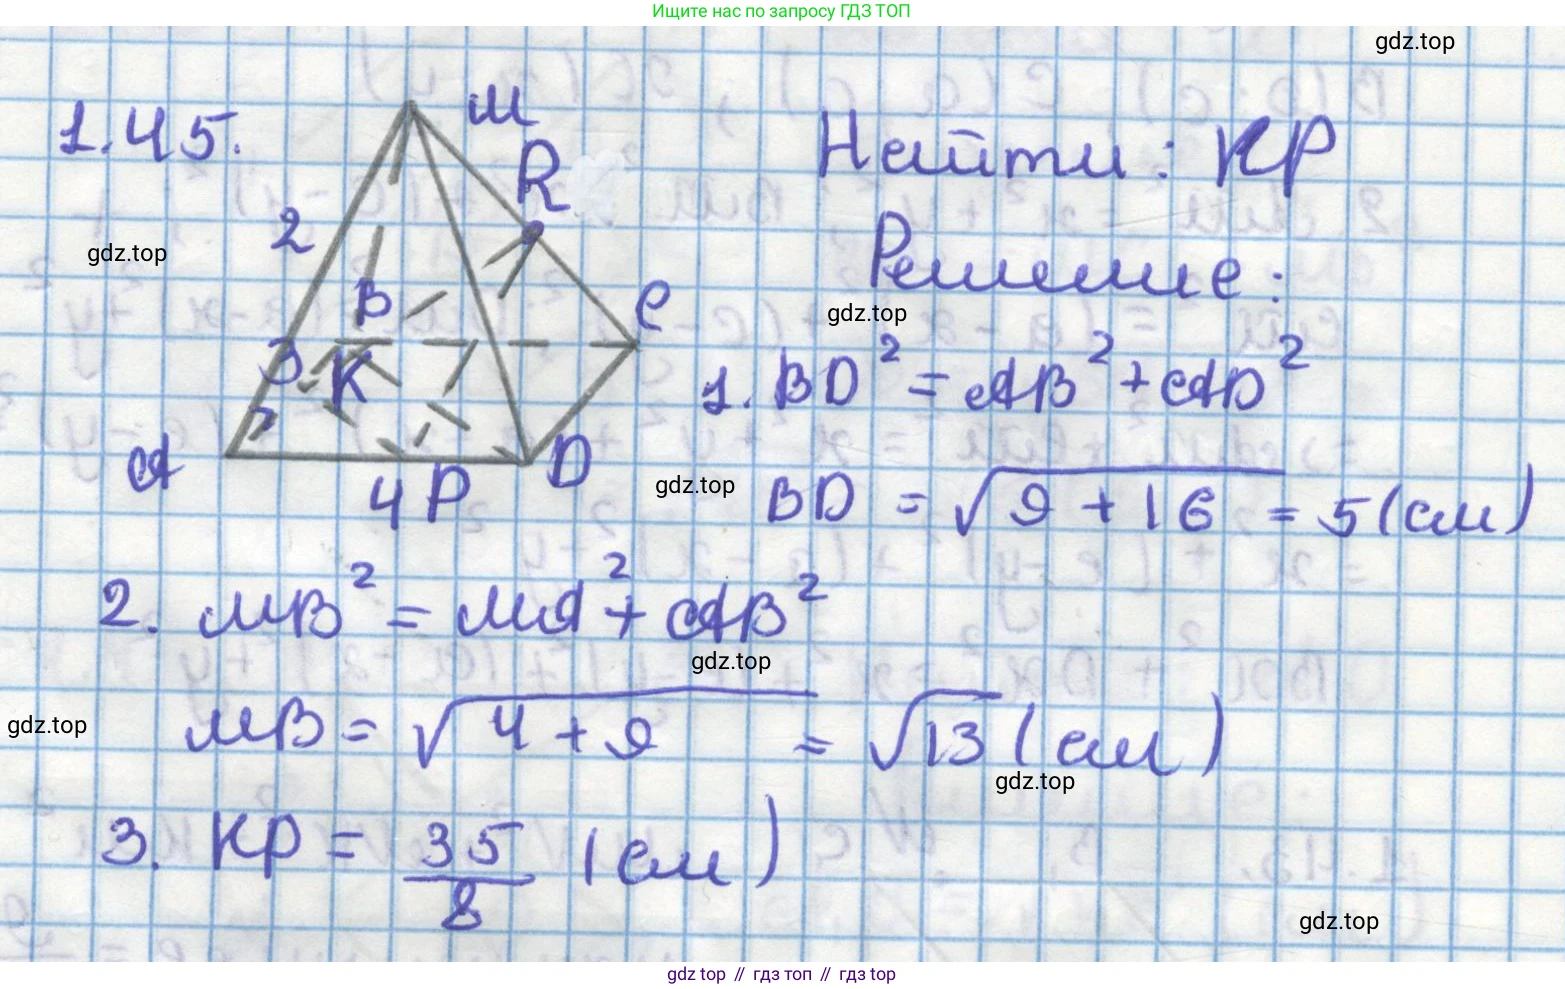 Ищите нас по запросу ГДЗ ТОП
gdz.top
1.45.
M
R
Найти: KP
2
gdz.top
Решение:
B
C
gdz.top
3
K
1. BD² = AB² + AD²
A
4 P
D
gdz.top
BD = √9 + 16 = 5 (см)
2. MB² = MA² + AB²
gdz.top
gdz.top
MB = √4 + 9 = √13 (см)
gdz.top
3. KP = 35/8 (см)
gdz.top
gdz top // гдз топ // гдз top